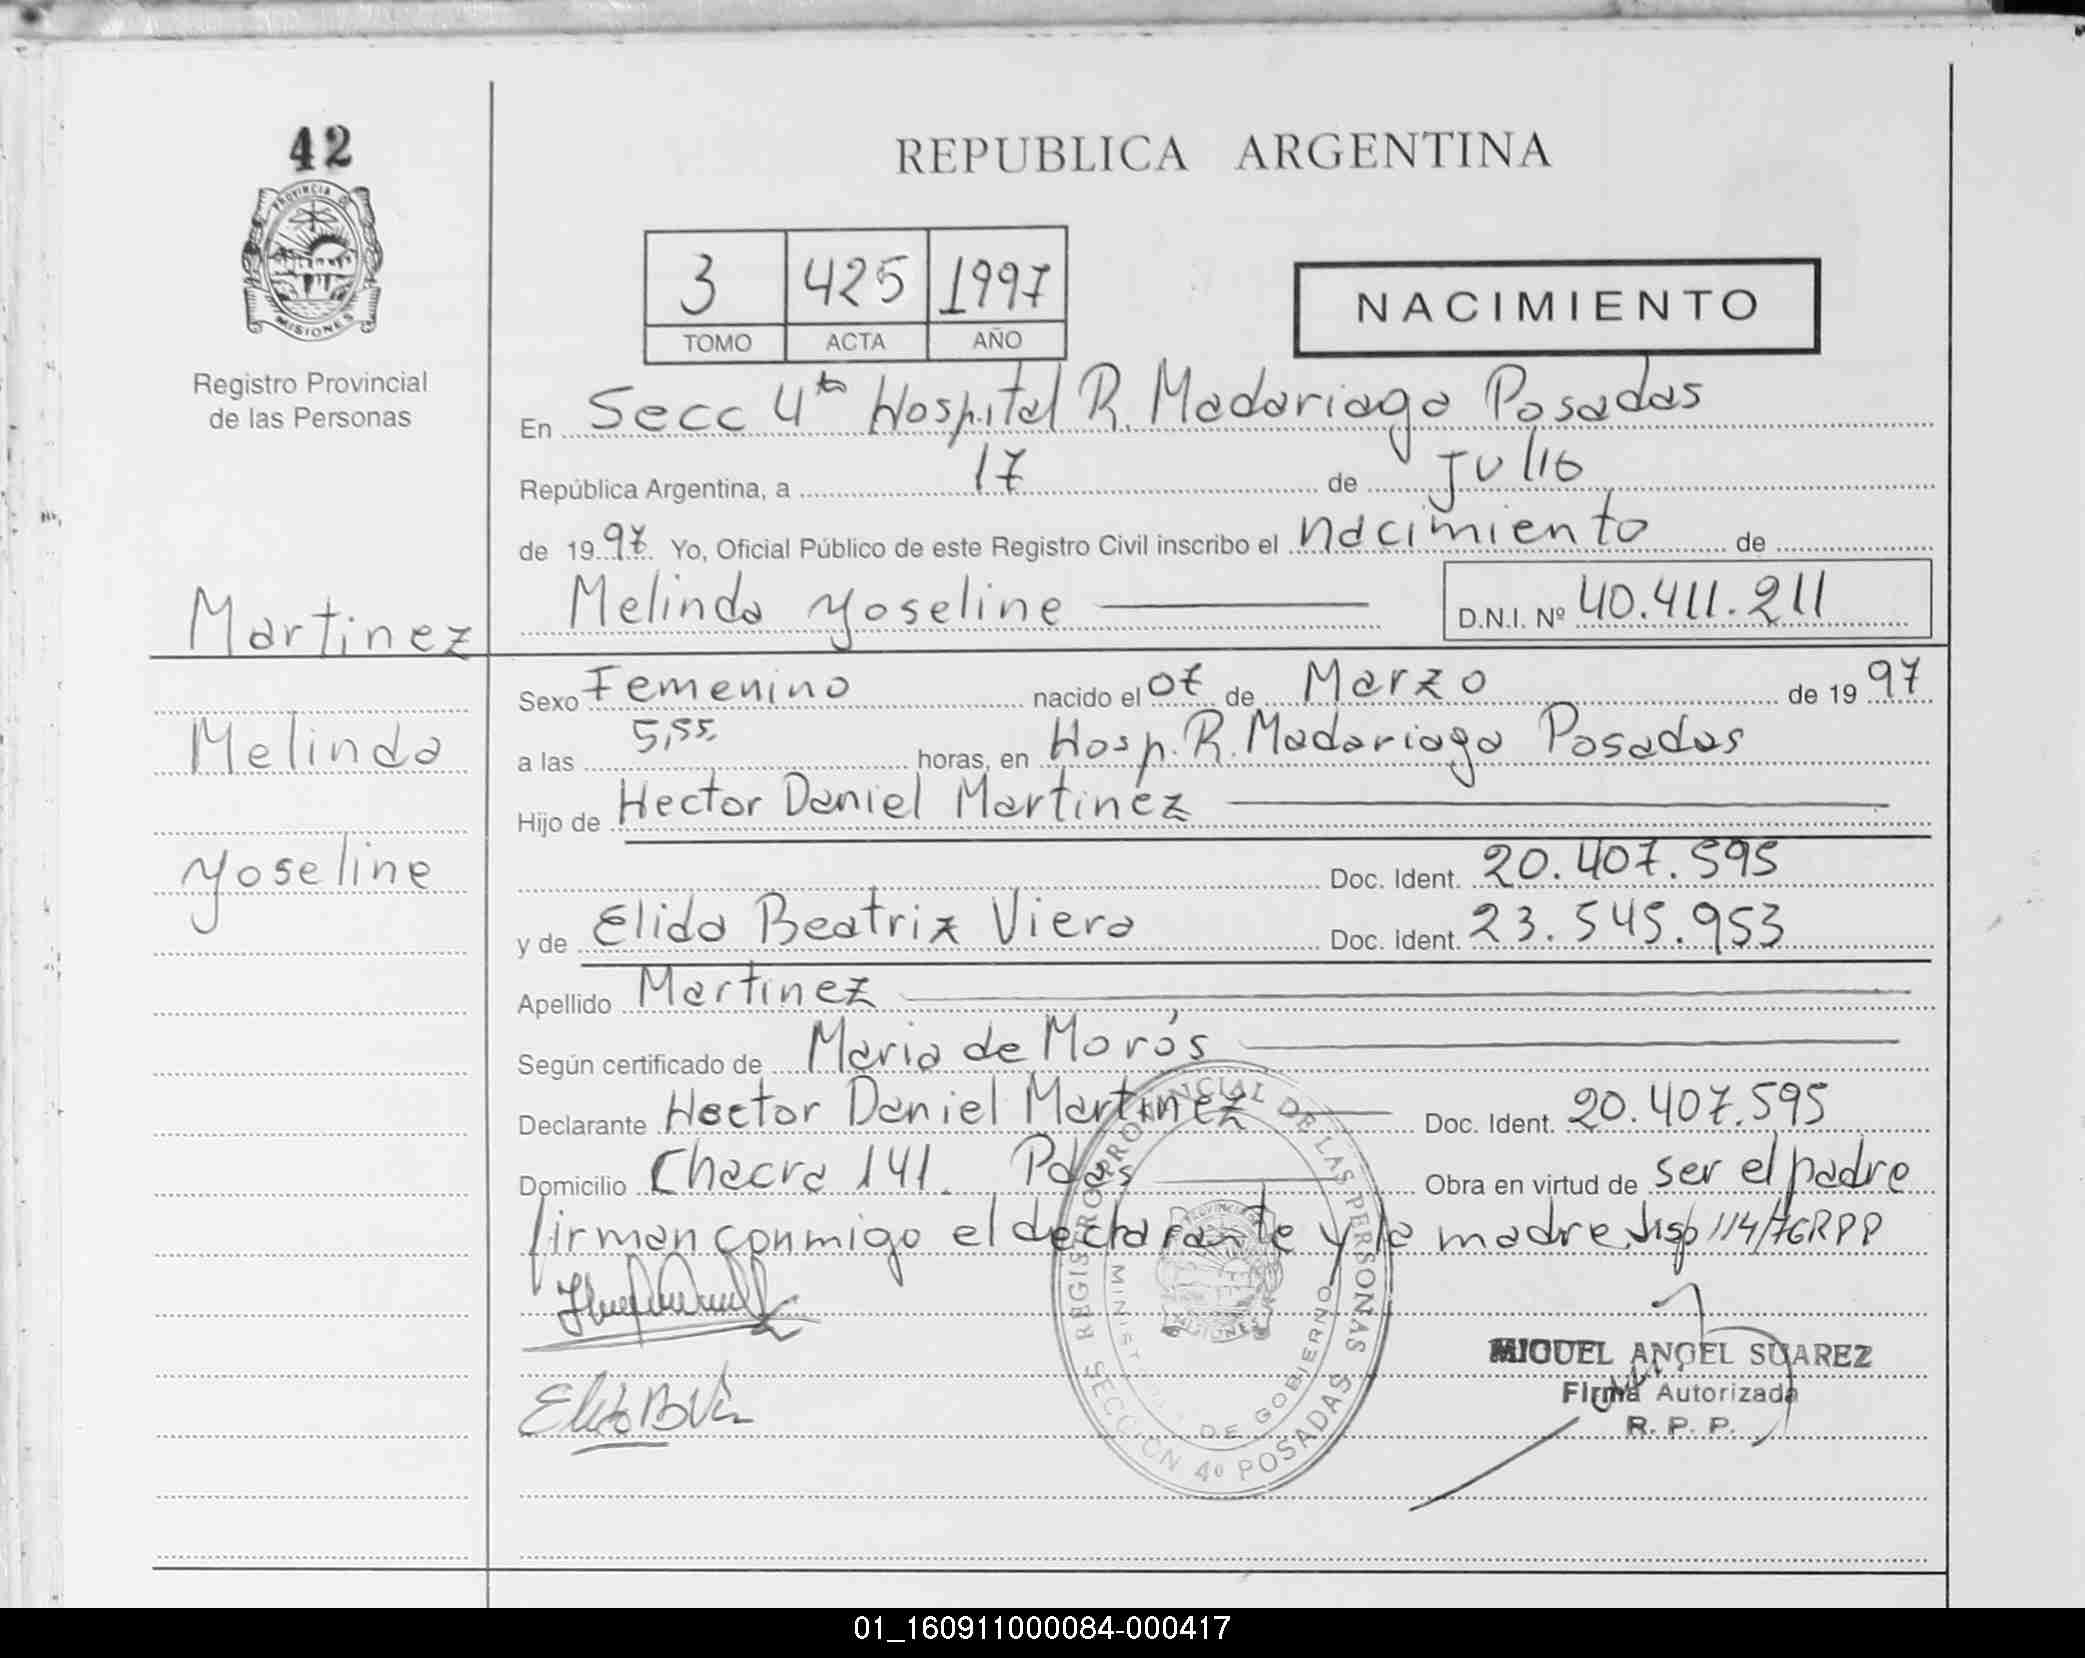 42
PROVINCIA DE
MISIONES
Registro Provincial
de las Personas
REPUBLICA ARGENTINA
3 425 1997
TOMO ACTA AÑO
NACIMIENTO
En Secc 4ta Hospital R. Madariaga Posadas
República Argentina, a 17 de Julio
de 1997 Yo, Oficial Público de este Registro Civil inscribo el nacimiento de
Martinez
Melinda Yoseline D.N.I. Nº 40.411.211
Sexo Femenino nacido el 07 de Marzo de 1997
Melinda
a las 5,55, horas, en Hosp. R. Madariaga Posadas
Hijo de Hector Daniel Martinez
Yoseline
Doc. Ident. 20.407.595
y de Elida Beatriz Viera Doc. Ident. 23.545.953
Apellido Martinez
Según certificado de Maria de Morós
Declarante Hector Daniel Martinez Doc. Ident. 20.407.595
Domicilio Chacra 141. Pdas Obra en virtud de ser el padre
firman conmigo el declarante y la madre. Disp 114/76RPP
REGISTRO PROVINCIAL DE LAS PERSONAS
MINISTERIO DE GOBIERNO
PROVINCIA
MISIONES
SECCION 4º POSADAS
MIGUEL ANGEL SUAREZ
Firma Autorizada
R. P. P.
01_160911000084-000417